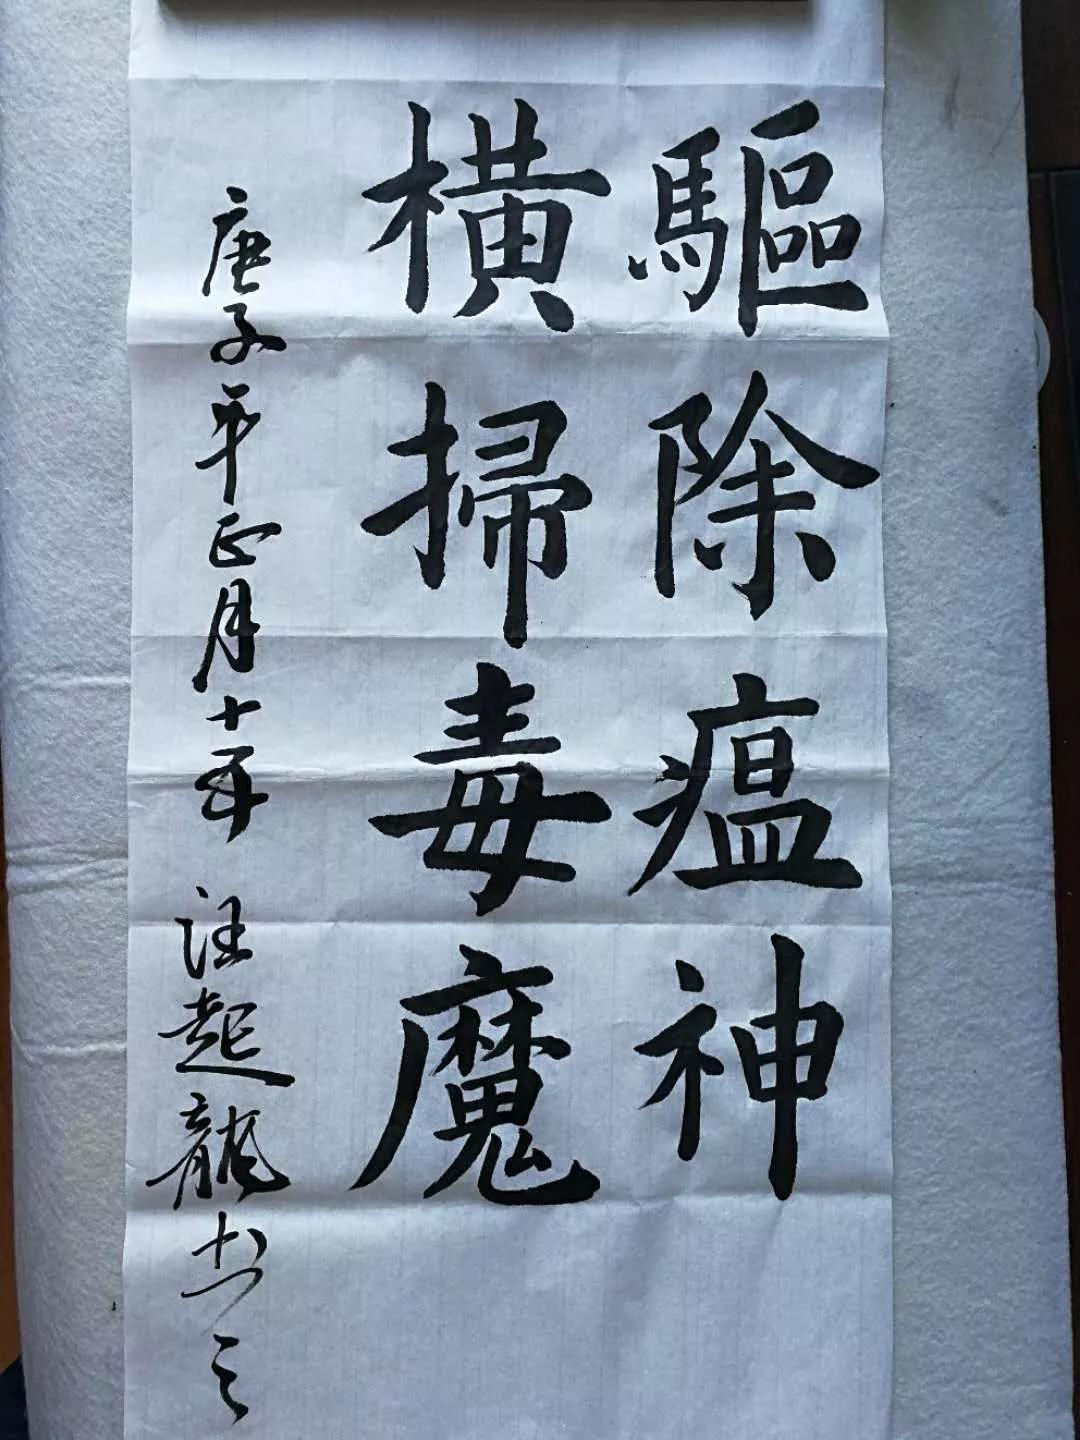 驅除瘟神
橫掃毒魔
庚子年正月十年 汪起龍书之